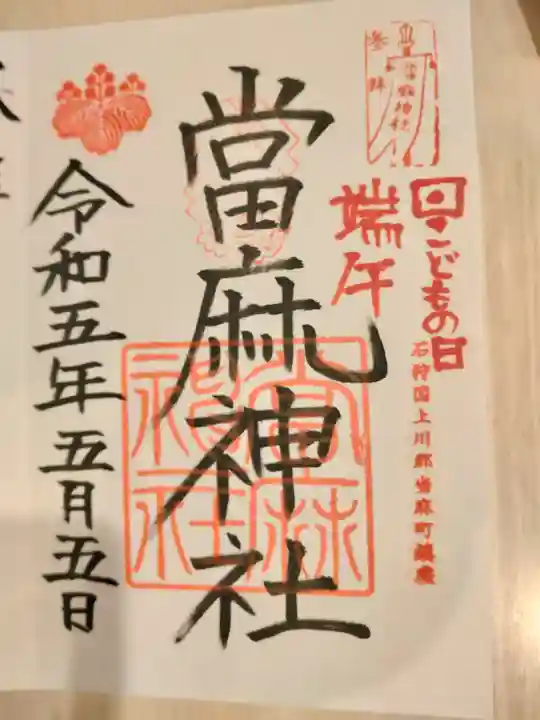 参拝
當麻神社
こどもの日
石狩国上川郡当麻町鎮座
端午
當麻神社
當麻神社
令和五年五月五日